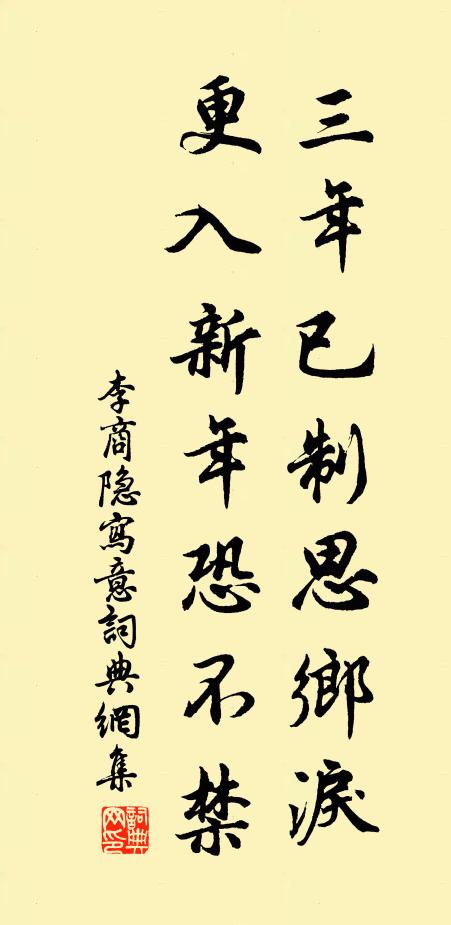 三年已制思鄉淚
更入新年恐不禁
李商隐寫意詞典網集
詞典
网印